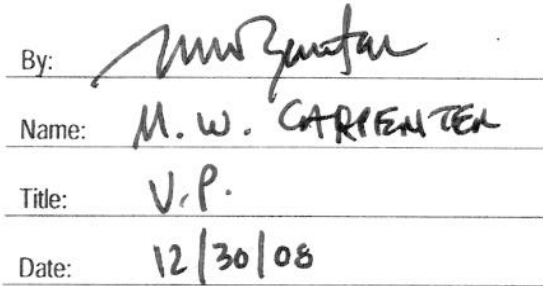 By:
Name: M. W. CARPENTER
Title: V.P.
Date: 12/30/08